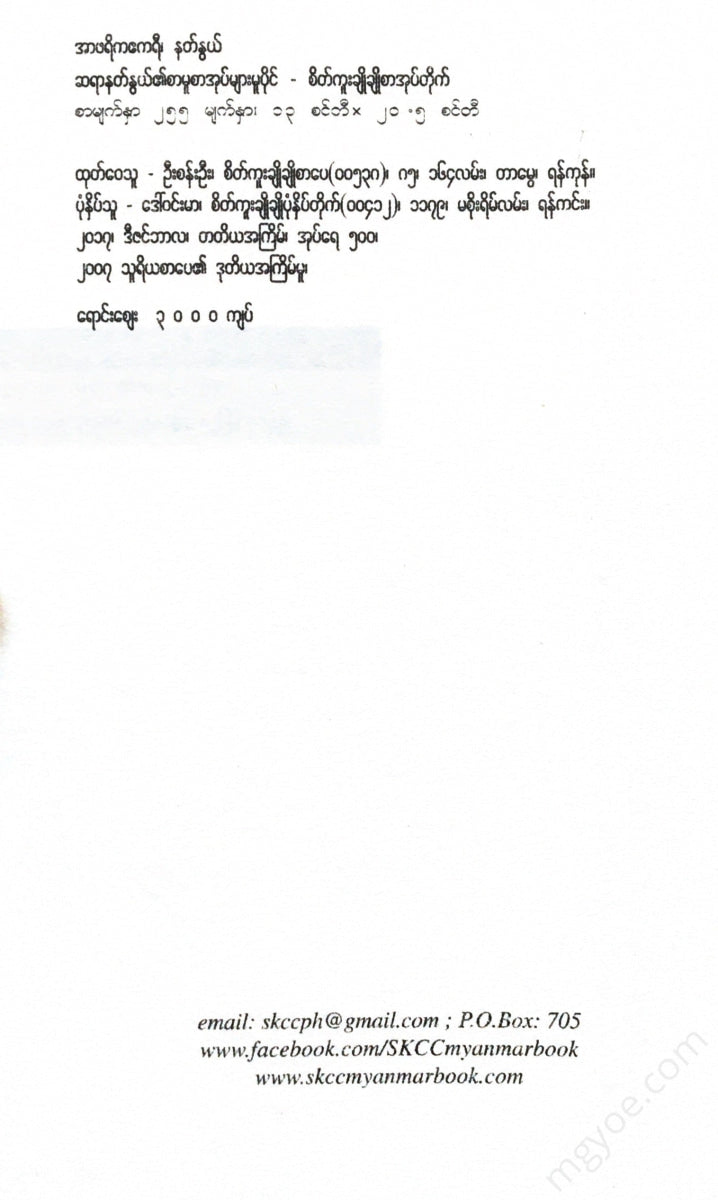 အာဖရိကဧကရီ၊ နတ်နွယ်
ဆရာနတ်နွယ်၏စာမူစာအုပ်များမူပိုင် - စိတ်ကူးချိုချိုစာအုပ်တိုက်
စာမျက်နှာ ၂၅၅ မျက်နှာ၊ ၁၃ စင်တီ× ၂၀.၅ စင်တီ
ထုတ်ဝေသူ - ဦးစန်းဦး၊ စိတ်ကူးချိုချိုစာပေ(၀၀၅၃၈)၊ ၈၅၊ ၁၆၄လမ်း၊ တာမွေ၊ ရန်ကုန်။
ပုံနှိပ်သူ - ဒေါ်ဝင်းမာ၊ စိတ်ကူးချိုချိုပုံနှိပ်တိုက်(၀၀၄၁၂)၊ ၁၁၇၉၊ မစိုးရိမ်လမ်း၊ ရန်ကင်း။
၂၀၁၇၊ ဒီဇင်ဘာလ၊ တတိယအကြိမ်၊ အုပ်ရေ ၅၀၀၊
၂၀၀၇ သူရိယစာပေ၏ ဒုတိယအကြိမ်မူ၊
ရောင်းဈေး ၃ ၀ ၀ ၀ ကျပ်
email: skccph@gmail.com ; P.O.Box: 705
www.facebook.com/SKCCmyanmarbook
www.skccmyanmarbook.com
mgyoe.com